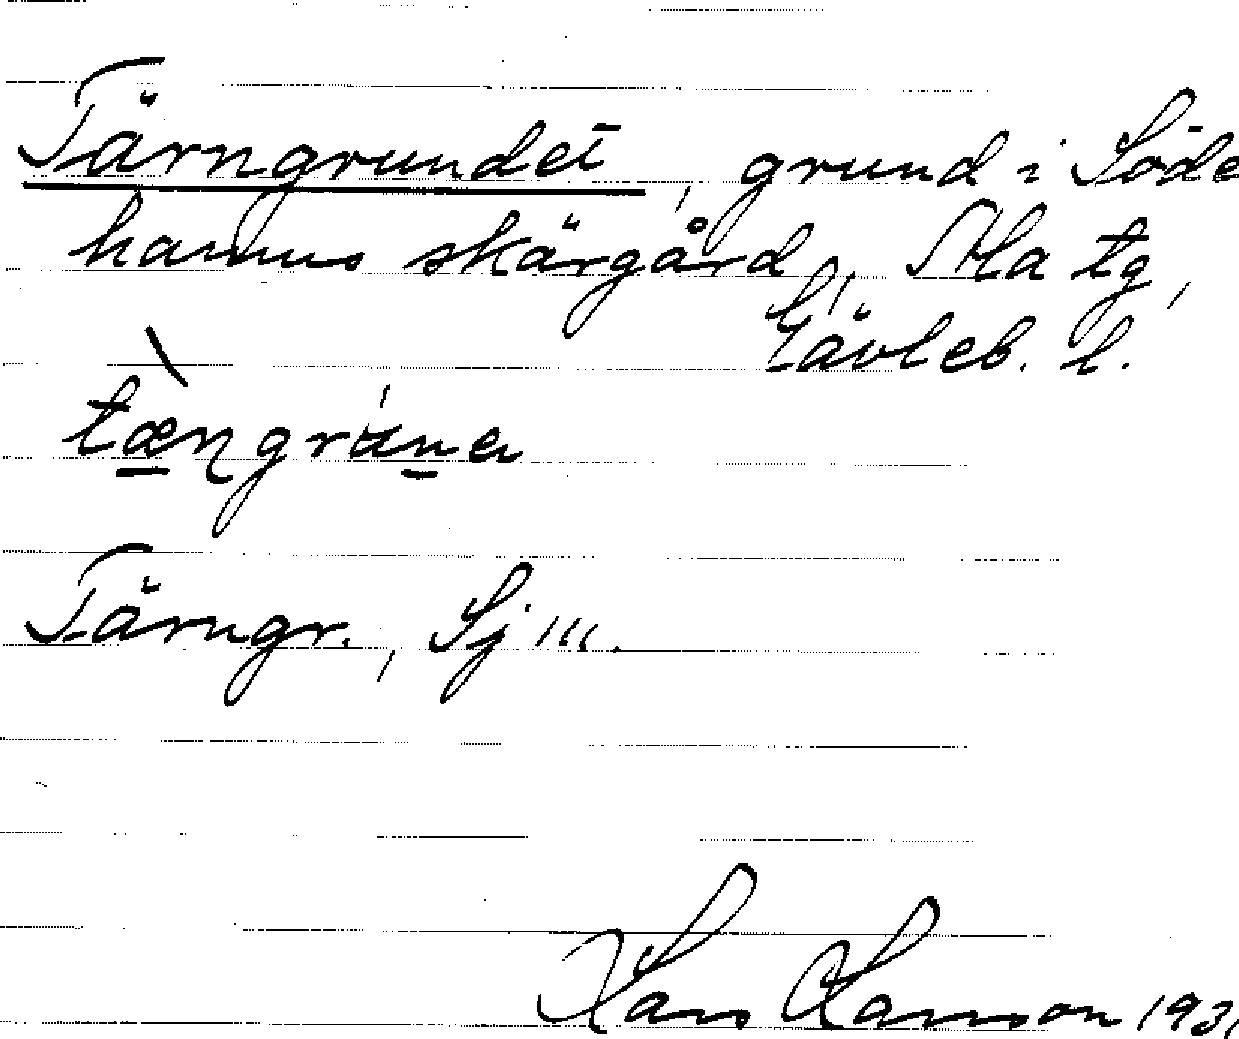 Tärngrundet, grund i Söde
hamns skärgård, Ala tg,
Gävleb. l.
tæŋgrúna
Tärngr., Sj 111.
Hans Hanson 1931